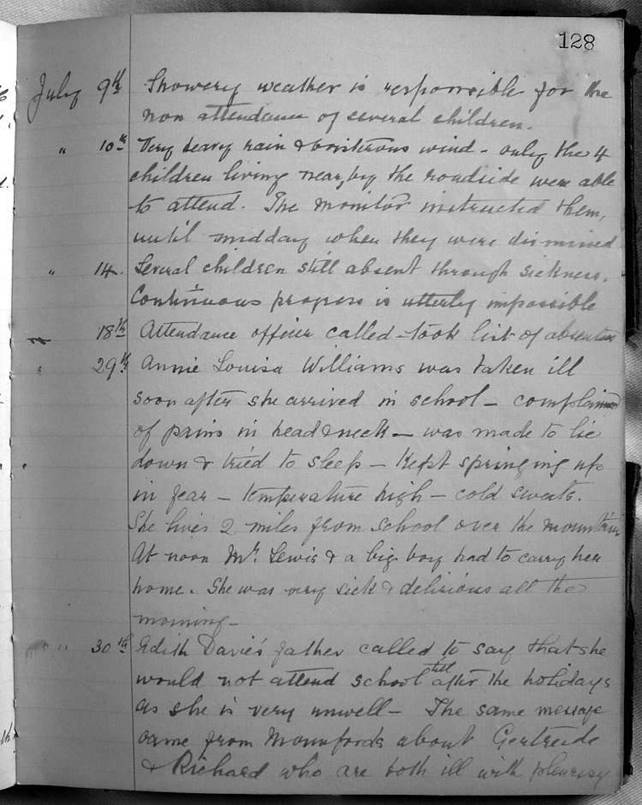 128
July 9th Showery weather is responsible for the
non attendance of several children.
" 10th Very heavy rain & boisterous wind - only the 4
children living near, by the roadside were able
to attend. The monitor instructed them,
until midday when they were dismissed
" 14. Several children still absent through sickness.
Continuous progress is utterly impossible
" 18th Attendance officer called - took list of absentees
" 29th Annie Louisa Williams was taken ill
soon after she arrived in school - complained
of pains in head & neck - was made to lie
down & tried to sleep - Kept springing up
in fear - temperature high - cold sweats.
She lives 2 miles from school over the mountain
At noon Mr. Lewis & a big boy had to carry her
home. She was very sick & delirious all the
morning -
" 30th Edith Davies' father called to say that she
would not attend school till after the holidays
as she is very unwell - The same message
came from Mounfords about Gertrude
& Richard who are both ill with pleurisy